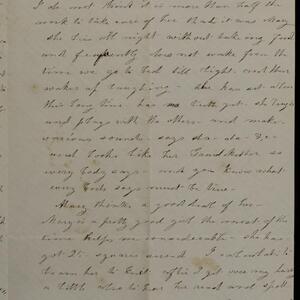 I do not think it is more than half the
work to take care of her that it was Mary
she lies all night without taking food
and frequently does not wake from the
time we go to bed till light. and then
wakes up laughing - she
this long time has teeth yet. she laughs
and plays with the others and makes
various sounds - says da - ata - &c
and looks like her Grandmother so
every body says - and you know what
every body says must be true.
Mary thinks a good deal of her
Mary is a pretty good girl the most of the
time helps me considerable - she has
got 25 squares I
to learn her to knit after I get over my
a little also to hear her read and spell